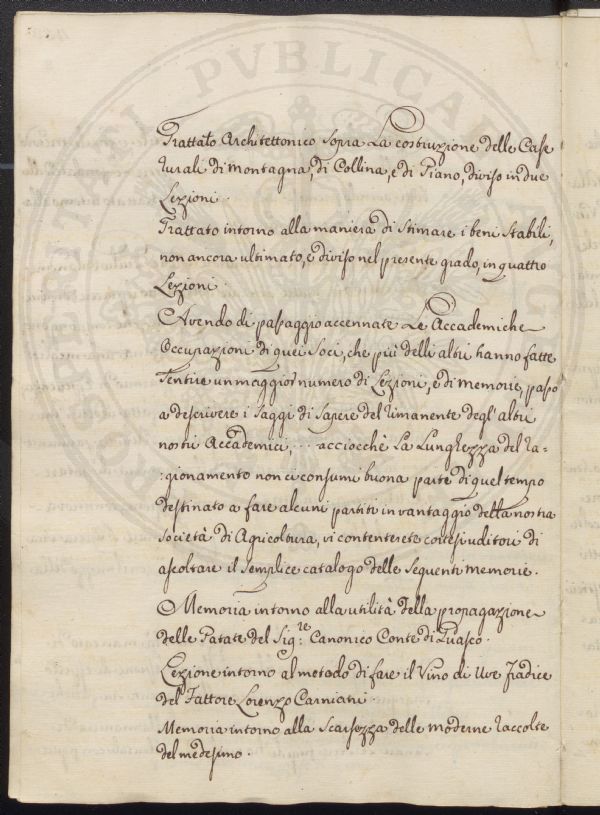 Trattato Architettonico sopra La costruzione delle Case
rurali di montagna, di Collina, e di Piano, diviso in due
Lezioni.
Trattato intorno alla maniera di stimare i beni stabili,
non ancora ultimato, e diviso nel presente grado, in quattro
Lezioni.
Avendo di passaggio accennate Le Accademiche
Occupazioni di quei Soci, che più delli altri hanno fatte
sentire un maggior numero di Lezioni, e di memorie, passo
a descrivere i saggi di sapere del rimanente degl'altri
nostri Accademici, ... acciocchè La Lunghezza del ra=
:gionamento non ci consumi buona parte di quel tempo
destinato a fare alcuni partiti in vantaggio della nostra
società di Agricoltura, vi contenterete cortesi uditori di
ascoltare il semplice catalogo delle seguenti memorie.
Memoria intorno alla utilità della propagazione
delle Patate del Sig:re Canonico Conte di Guasco.
Lezione intorno al metodo di fare il Vino di Uve fradice
del Fattore Lorenzo Carniani.
Memoria intorno alla scarsezza delle moderne raccolte
del medesimo.
PVBLICAE